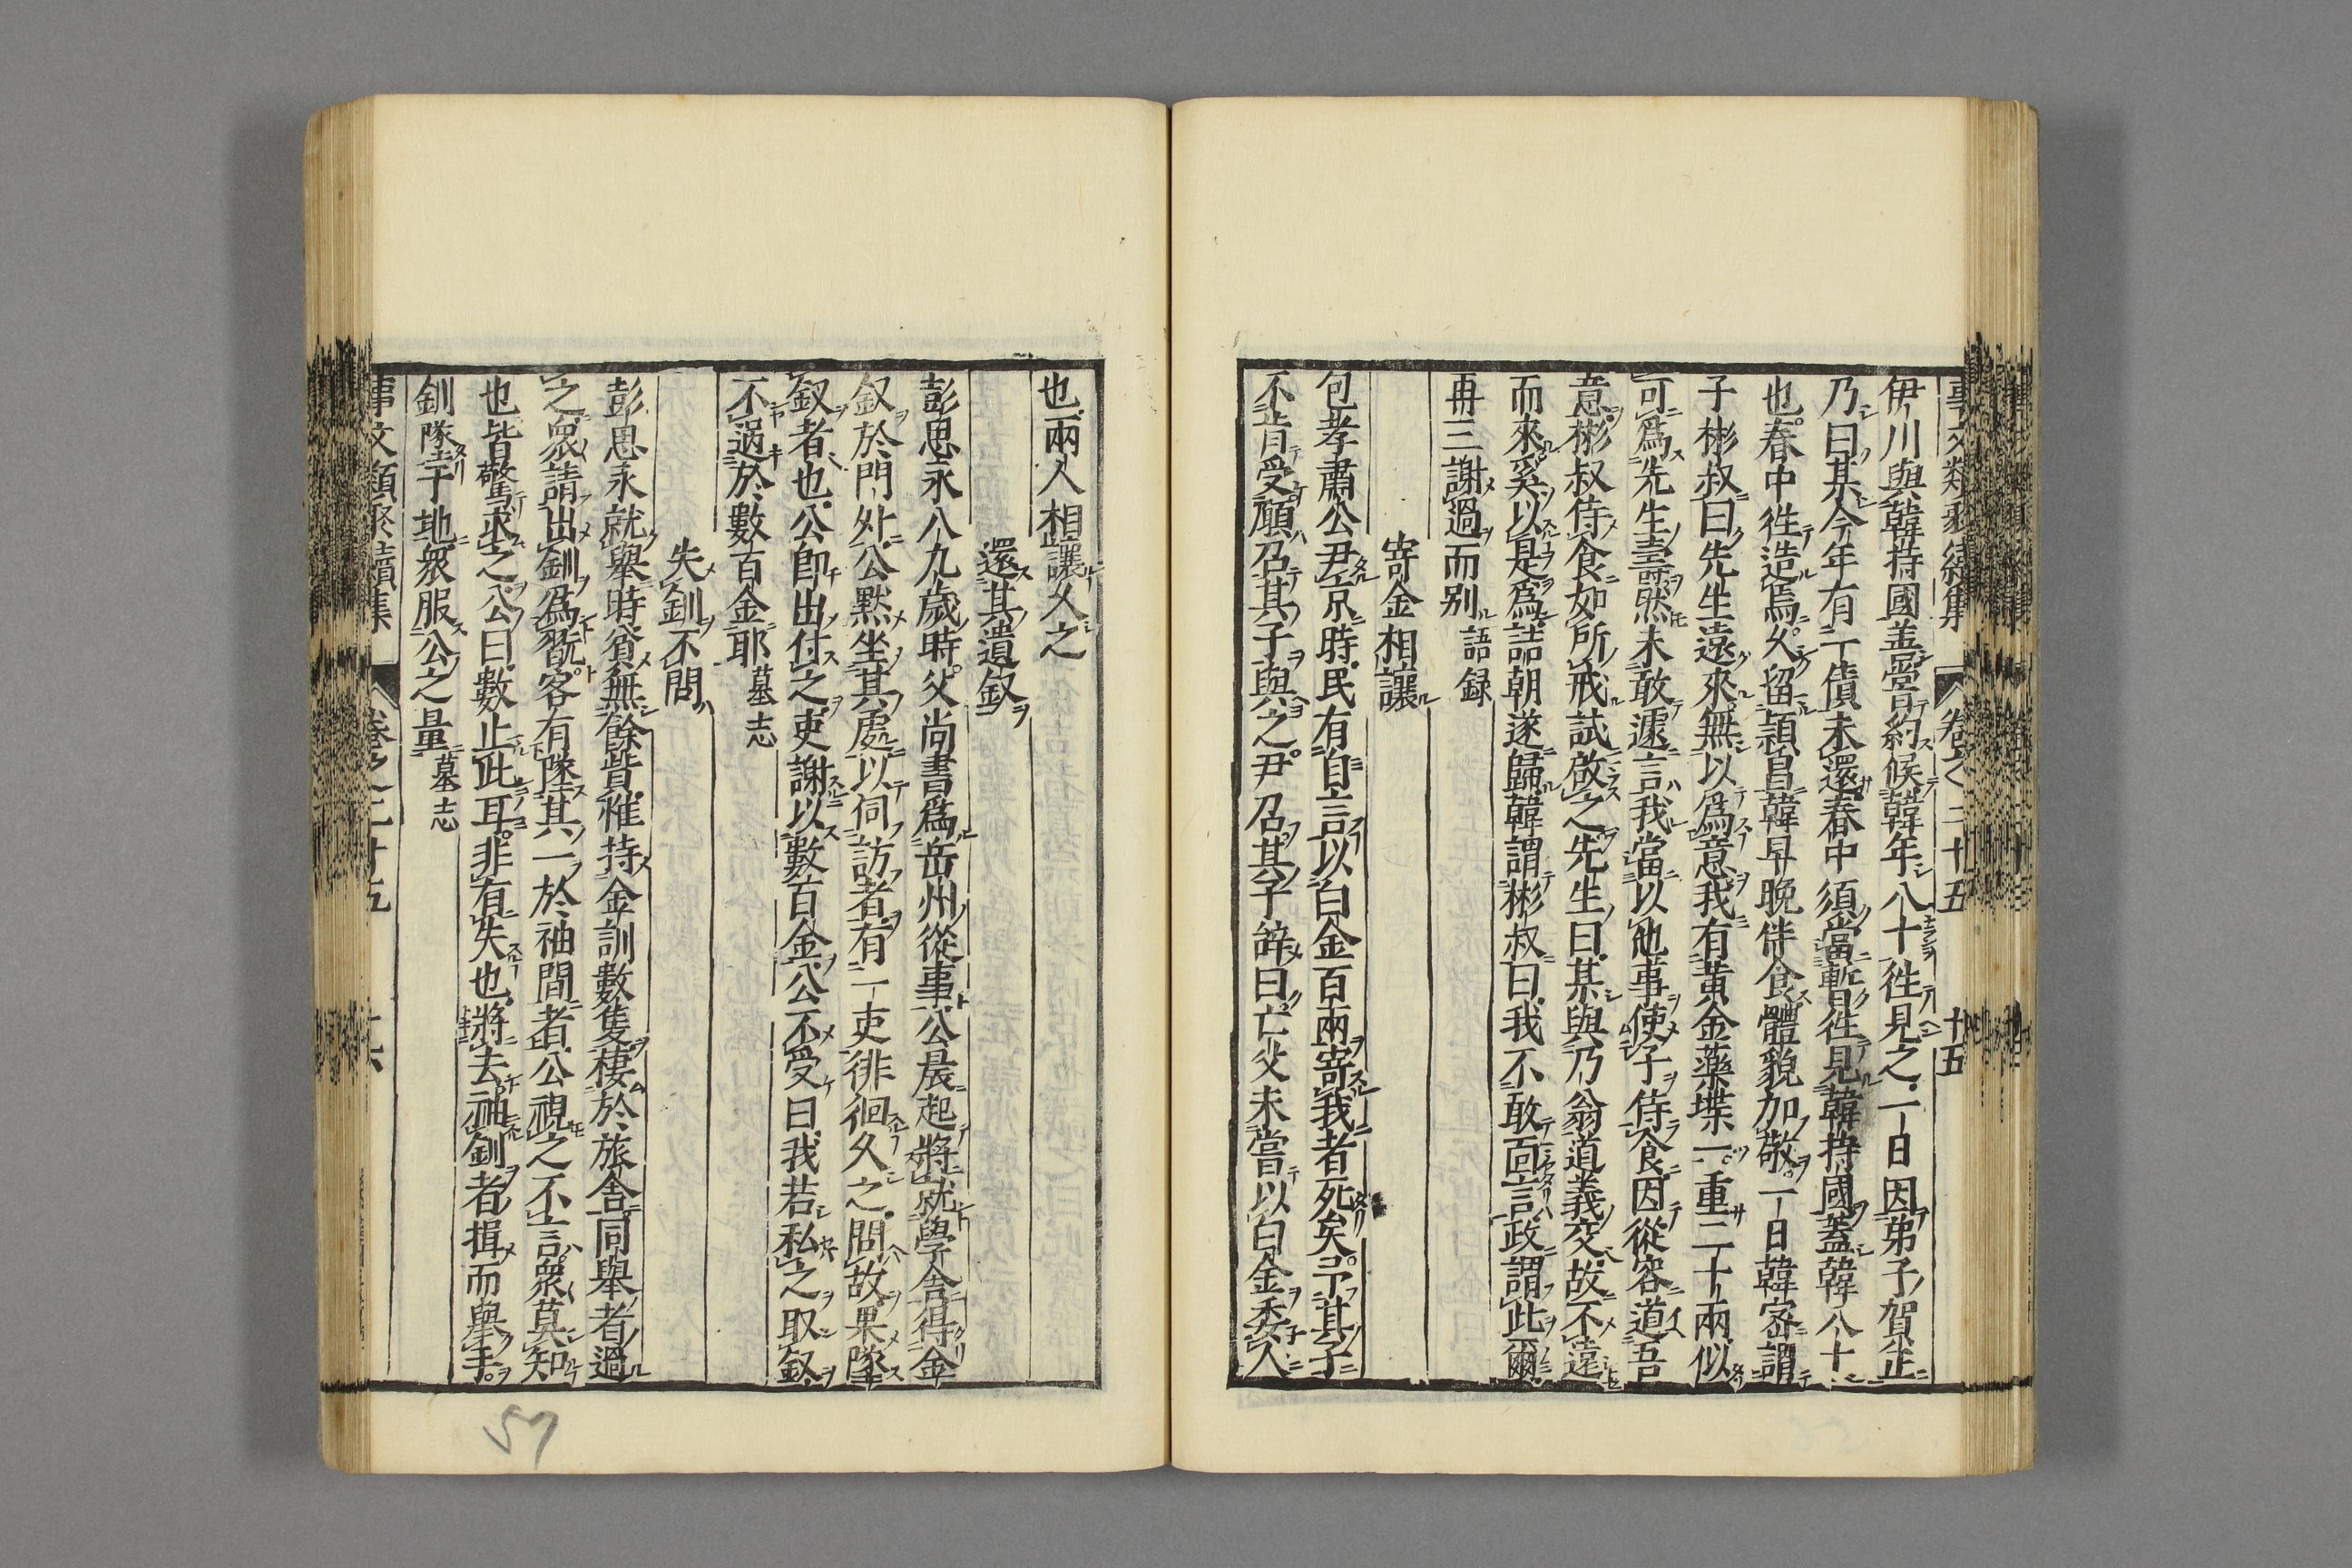 事文類聚續集 卷之二十五 十五
伊川與韓持國盖嘗約候韓年八十徃見之一日因弟子賀正
乃曰某今年有一債未還春中須當暫徃見韓持國蓋韓八十
也春中徃造焉久留頴昌韓早晚伴食體貌加敬一日韓密謂
子彬叔曰先生遠來無以爲意我有黄金藥楪一重二十兩似
可爲先生壽然未敢遽言我當以他事使子侍食因從容道吾
意彬叔侍食如所戒試啟之先生曰某與乃翁道義交故不遠
而來奚以是爲詰朝遂歸韓謂彬叔曰我不敢面言政謂此爾
再三謝過而别 語録
寄金相讓
包孝肅公尹京時民有自言以白金百兩寄我者死矣予其子
不肯受願召其子與之尹召其子辭曰亡父未嘗以白金委人
也兩人相讓久之
還其遺釵
彭思永八九歲時父尚書爲岳州從事公晨起將就學舍得金
釵於門外公黙坐其處以伺訪者有一吏徘徊久之問故果墜
釵者也公卽出付之吏謝以數百金公不受曰我若私之取釵
不過於數百金耶 墓志
失釧不問
彭思永就舉時貧無餘貲惟持金訓數隻棲於旅舍同舉者過
之衆請出釧爲翫客有墜其一於袖間者公視之不言衆莫知
也皆驚求之公曰數止此耳非有失也將去袖釧者揖而舉手
釧墜于地衆服公之量 墓志
事文類聚續集 卷之二十五 十六
57